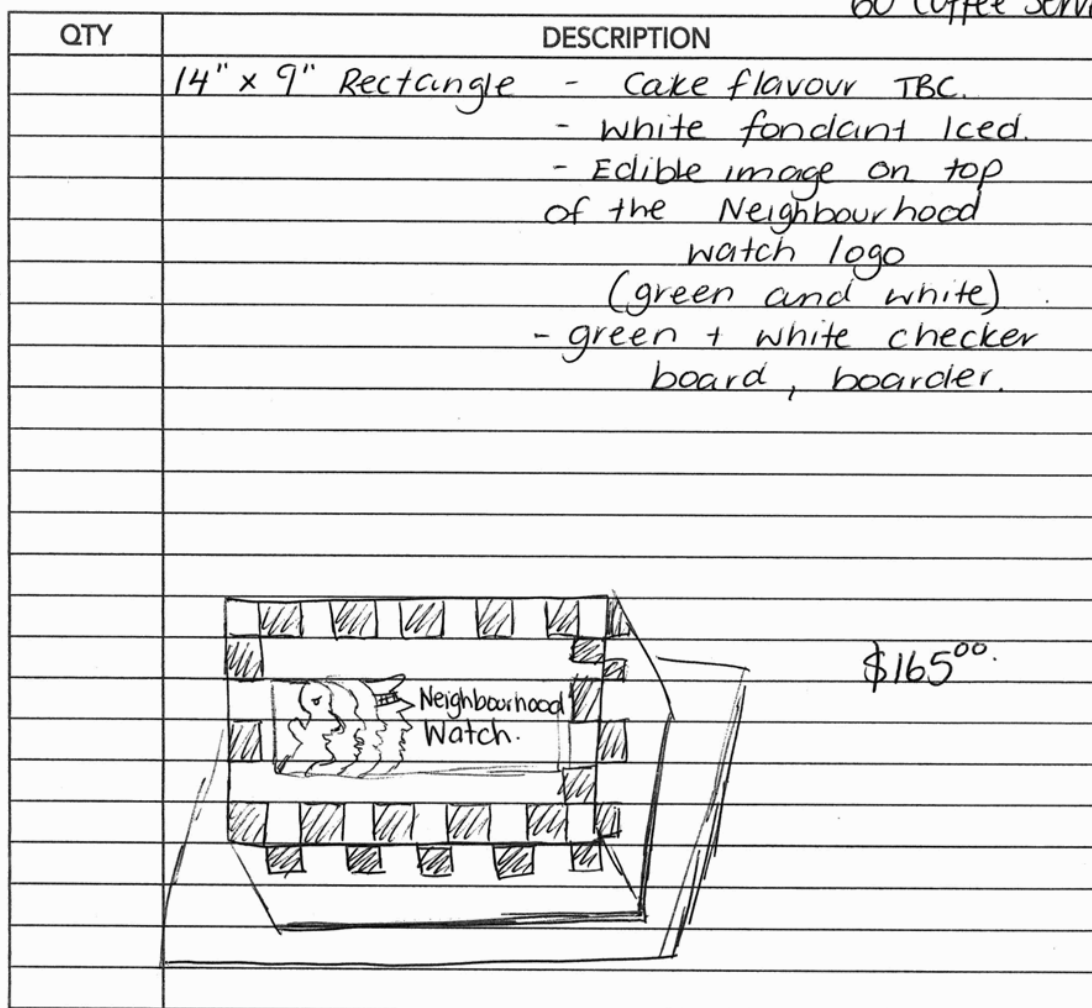 60 Coffee Serv
QTY DESCRIPTION
14" x 9" Rectangle - Cake flavour TBC.
- White fondant Iced.
- Edible image on top
of the Neighbourhood
watch logo
(green and white)
- green + white checker
board, boarder.
$165⁰⁰.
Neighbourhood
Watch.